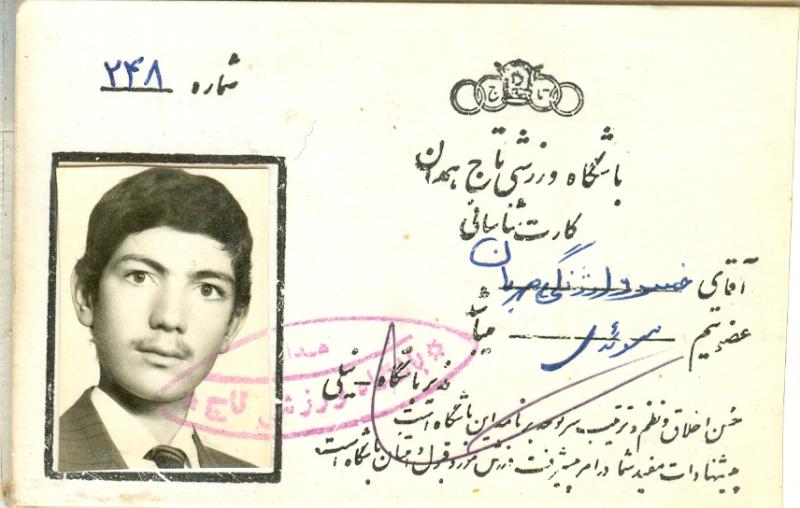 شماره ۲۴۸
تاج
باشگاه ورزشی تاج همدان
کارت شناسائی
آقای خسرو ارژنگی مهربان
عضو تیم میباشد
مدیر باشگاه - نیلی
حسن اخلاق و نظم و ترتیب سرلوحه برنامه این باشگاه است
پیشنهادات مفید شما در امر پیشرفت ورزش مورد قبول و امتنان باشگاه است
باشگاه ورزشی تاج
همدان